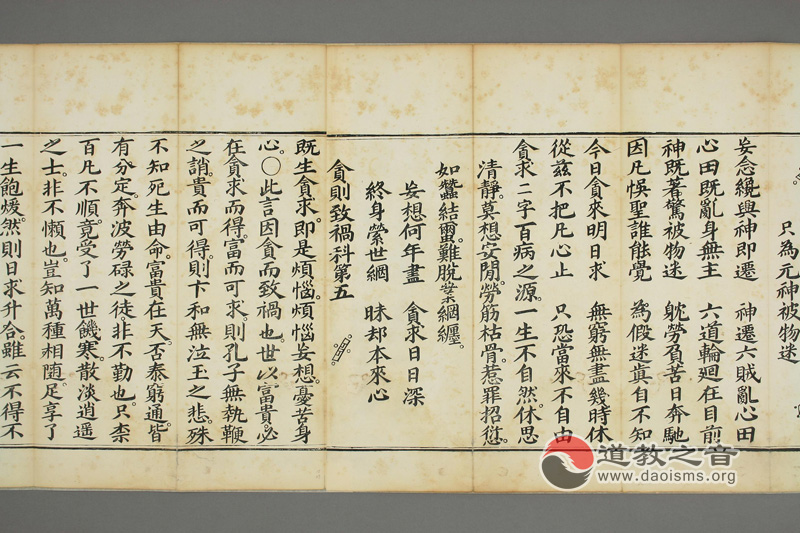 只為元神被物迷
妄念纔興神即遷　神遷六賊亂心田
心田既亂身無主　六道輪廻在目前
神既著驚被物迷　躭勞負苦日奔馳
因凡悞聖誰能覺　為假迷真自不知
今日貪來明日求　無窮無盡幾時休
從茲不把凡心止　只恐當來不自由
貪求二字百病之源。一生不自然。休思
清靜。莫想安閒。勞筋枯骨。惹罪招愆。
如蠶結蜜。難脫業綱纏。
妄想何年盡　貪求日日深
終身縈世綱　昧却本來心
貪則致禍科第五
既生貪求。即是煩惱。煩惱妄想。憂苦身
心。○此言因貪而致禍也。世以富貴必
在貪求而得。富而可求。則孔子無執鞭
之誚。貴而可得。則卞和無泣玉之悲。殊
不知死生由命。富貴在天。否泰窮通。皆
有分定。奔波勞碌之徒。非不勤也。只柰
百凡不順。竟受了一世饑寒。散淡逍遥
之士。非不懶也。豈知萬種相随。足享了
一生飽煖。然則日求升合。雖云不得不
道教之音
www.daoisms.org